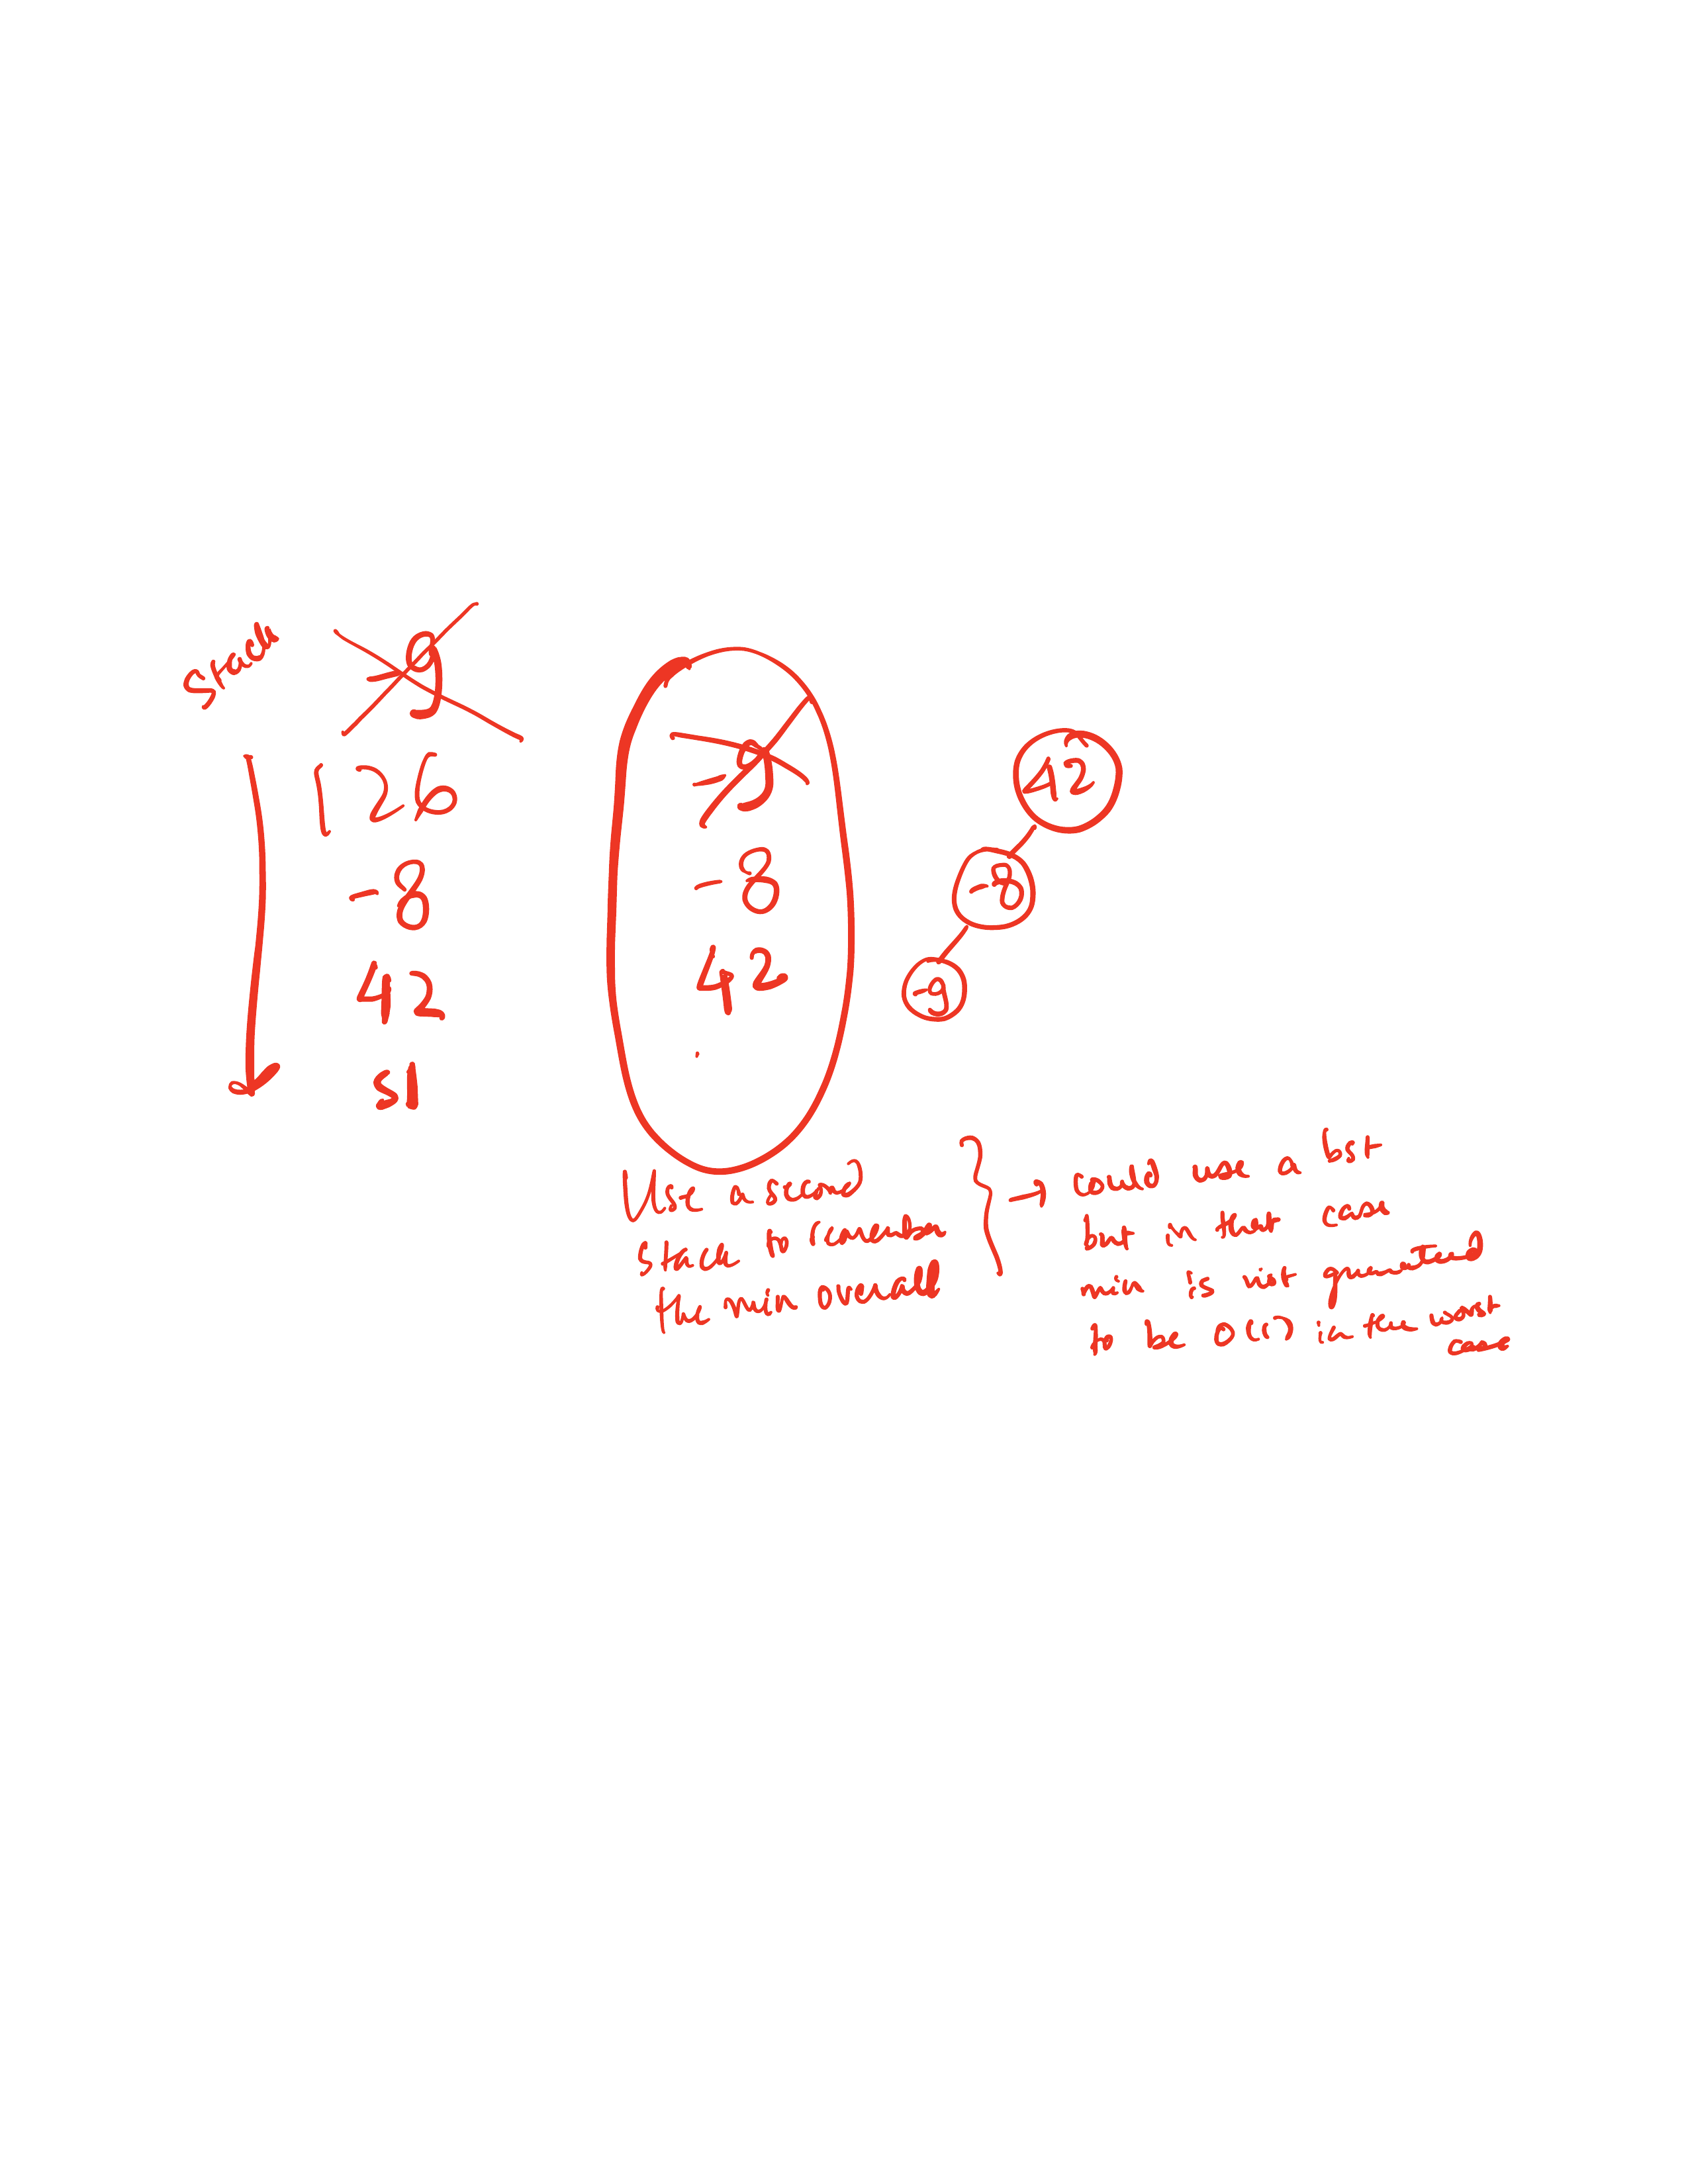 Stack
-9
126
-8
42
51
-9
-8
42
42
-8
-9
Use a second
stack to remember
the min overall
→ could use a bst
but in that case
min is not guaranteed
to be O(1) in the worst
case